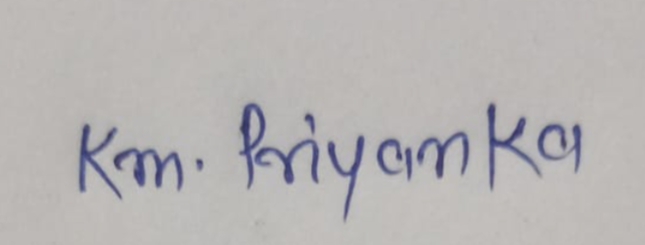 Km. Priyanka